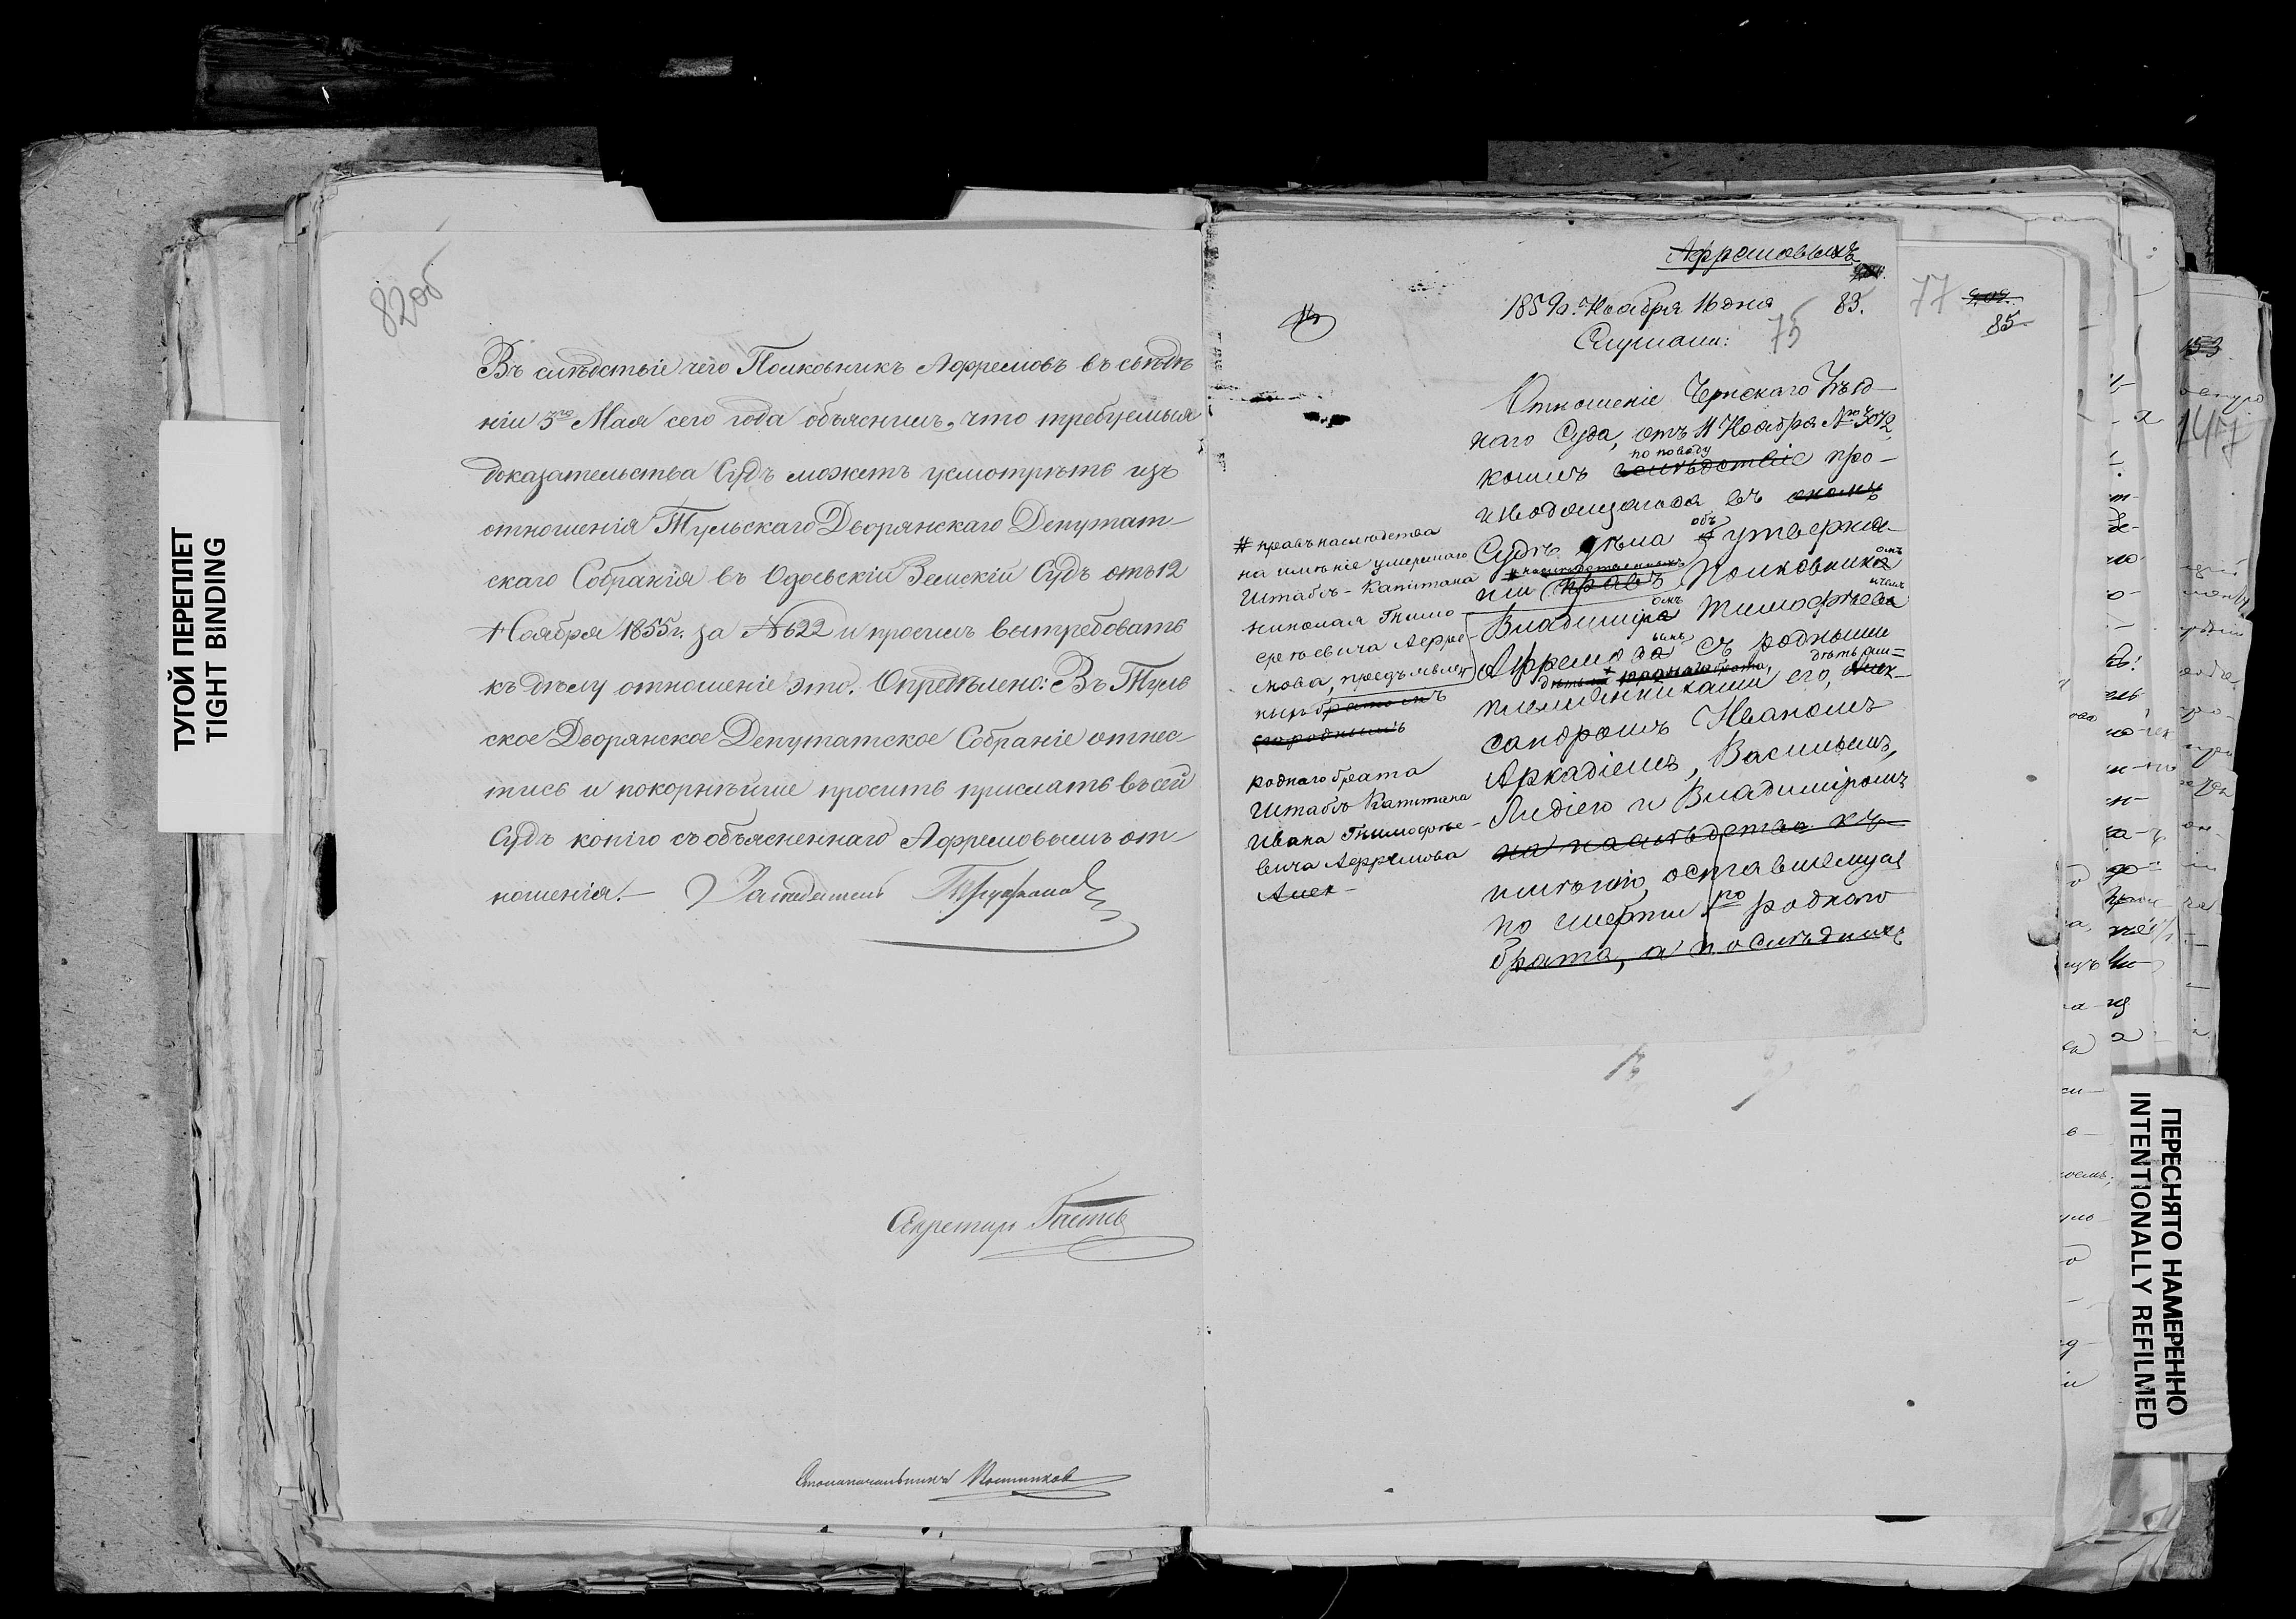 82об
Въ слѣдствіе чего Полковникъ Афремовъ въ свѣдѣ
ніи 3го Мая сего года объяснилъ, что требуемыя
доказательства Судъ можетъ усмотрѣть изъ
отношенія Тульскаго Дворянскаго Депутат-
скаго Собранія въ Одоевскій Земскій Судъ отъ 12
Ноября 1855 г. за № 622 и просилъ вытребовать
къ дѣлу отношеніе это. Опредѣлено: Въ Туль
ское Дворянское Депутатское Собраніе отнес-
тись и покорнѣйше просить прислать въ сей
Судъ копію съ объясненнаго Афремовымъ от-
ношенія. — Засѣдатель
Секретарь
Столоначальникъ
ТУГОЙ ПЕРЕПЛЕТ
TIGHT BINDING
Афремовыхъ
1859 г. Ноября 16 дня 83.
77
85
75
Слушали:
Отношеніе Чернскаго Уѣзд-
наго Суда, отъ 11 Ноября № 3072,
коимъ
по поводу
вслѣдствіе про-
изводящагося въ ономъ
Судѣ дѣла объ утвержде-
ніи правъ Полковника
Владиміра Тимофѣева
Афремова съ родными
племянниками его, Алек-
сандромъ Иваномъ
Аркадіемъ, Васильемъ,
Лидіею и Владиміромъ
на наслѣдство къ
имѣнію, оставшемуся
по смерти по роднаго
брата, а послѣднихъ
# правъ наслѣдства
на имѣніе умершаго
Штабсъ-Капитана
Николая Тимо
феевича Афре-
мова, предъявлен
ныхъ братомъ
его роднымъ
роднаго брата
Штабсъ Капитана
Ивана Тимофѣе-
вича Афремова
Алек-
153
ПЕРЕСНЯТО НАМЕРЕННО
INTENTIONALLY REFILMED